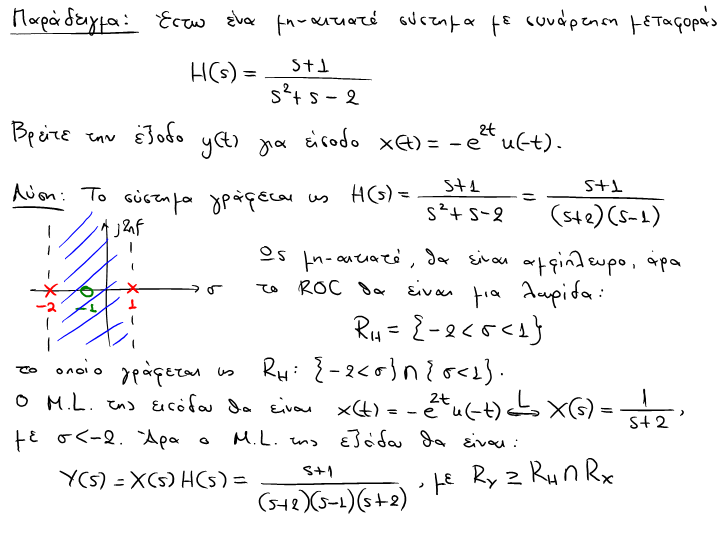 Παράδειγμα: Έστω ένα μη-αιτιατό σύστημα με συνάρτηση μεταφοράς
H(s) = \frac{s+1}{s^2+s-2}
Βρείτε την έξοδο y(t) για είσοδο x(t) = -e^{2t}u(-t).
Λύση: Το σύστημα γράφεται ως H(s) = \frac{s+1}{s^2+s-2} = \frac{s+1}{(s+2)(s-1)}
j2πf
σ
-2 -1 1
Ως μη-αιτιατό, θα είναι αμφίπλευρο, άρα
το ROC θα είναι μια λωρίδα:
R_H = {-2<σ<1}
το οποίο γράφεται ως R_H: {-2<σ}∩{σ<1}.
Ο Μ.L. της εισόδου θα είναι x(t) = -e^{2t}u(-t) \overset{L}{⟷} X(s) = \frac{1}{s+2},
με σ<-2. Άρα ο Μ.L. της εξόδου θα είναι:
Y(s) = X(s)H(s) = \frac{s+1}{(s+2)(s-1)(s+2)}, με R_Y ⊇ R_H ∩ R_X